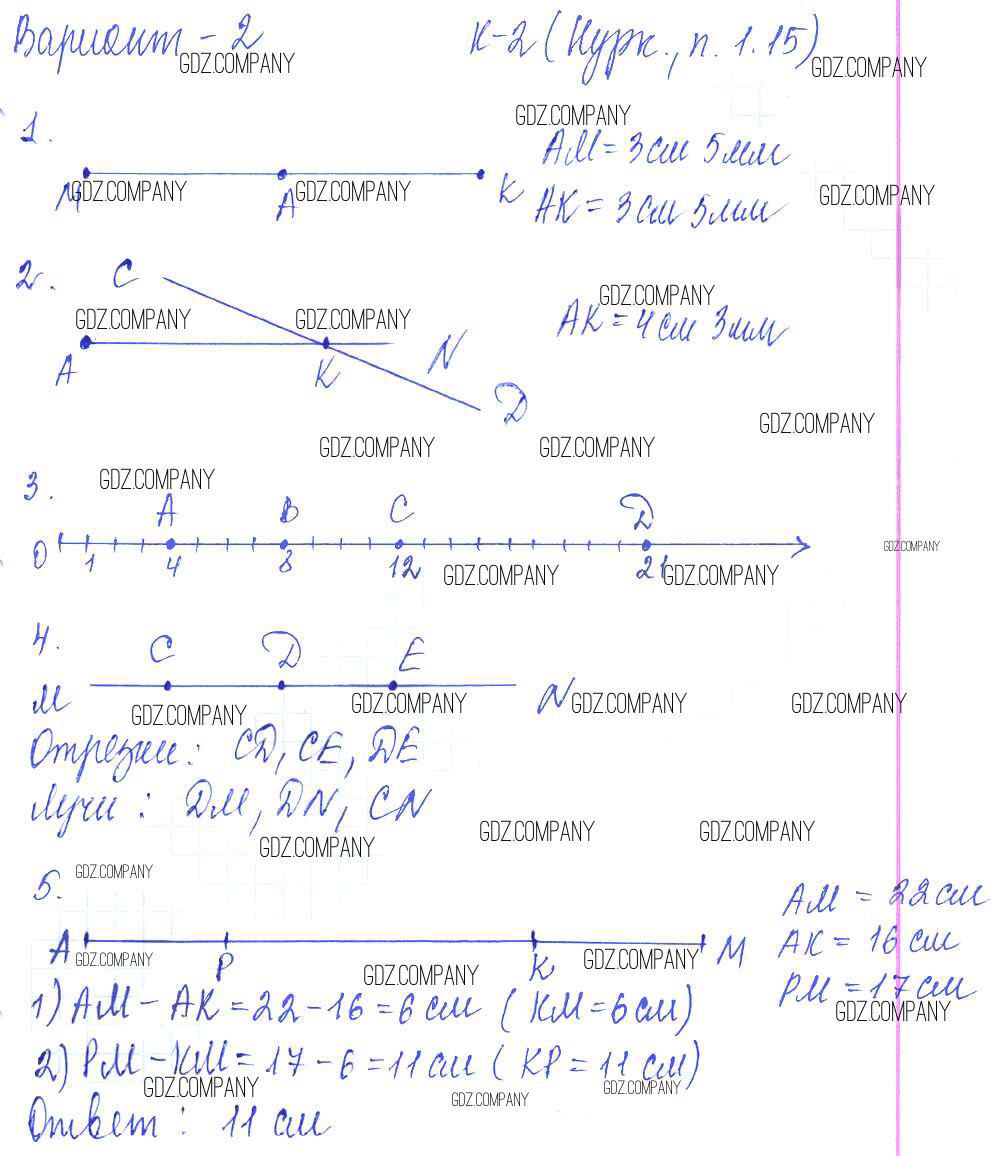 Вариант - 2 К-2 (Нурк., п. 1.15)
GDZ.COMPANY GDZ.COMPANY
GDZ.COMPANY
1.
AM = 3 см 5 мм
M A K
GDZ.COMPANY GDZ.COMPANY GDZ.COMPANY
AK = 3 см 5 мм
2. C
GDZ.COMPANY
GDZ.COMPANY GDZ.COMPANY
AK = 4 см 3 мм
A K N
D
GDZ.COMPANY
GDZ.COMPANY GDZ.COMPANY
3. GDZ.COMPANY
A B C D
GDZ.COMPANY
0 1 4 8 12 21
GDZ.COMPANY GDZ.COMPANY
4.
C D E
M N
GDZ.COMPANY GDZ.COMPANY GDZ.COMPANY GDZ.COMPANY
Отрезки: CD, CE, DE
Лучи: DM, DN, CN
GDZ.COMPANY GDZ.COMPANY GDZ.COMPANY
GDZ.COMPANY
5.
AM = 22 см
A P K M
AK = 16 см
GDZ.COMPANY GDZ.COMPANY GDZ.COMPANY
PM = 17 см
GDZ.COMPANY
1) AM - AK = 22 - 16 = 6 см (KM = 6 см)
2) PM - KM = 17 - 6 = 11 см (KP = 11 см)
GDZ.COMPANY GDZ.COMPANY GDZ.COMPANY
Ответ: 11 см